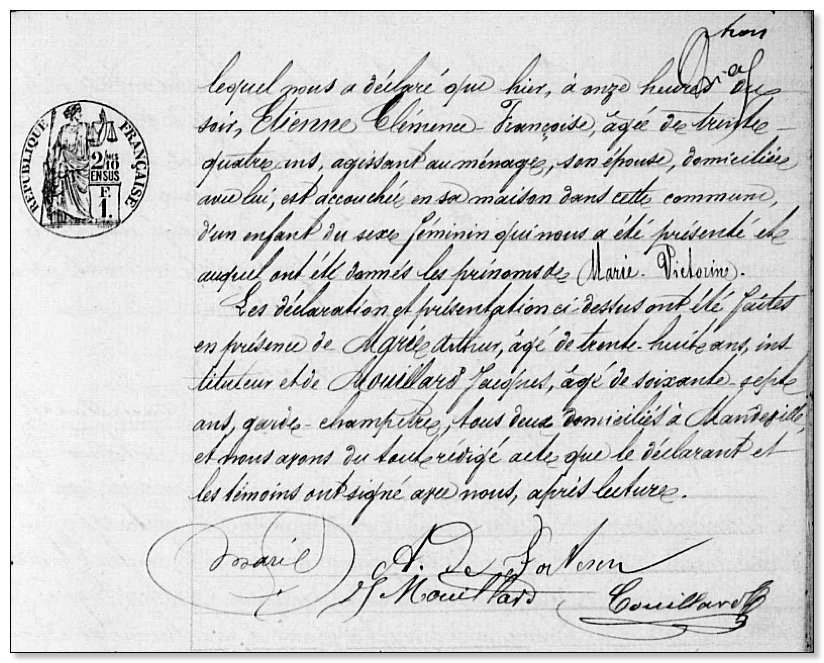 lequel nous a déclaré que hier, à onze heures du
soir, Etienne Clémence-Françoise, âgée de trente-
quatre ans, agissant au ménage, son épouse, domiciliée
avec lui, est accouchée en sa maison dans cette commune,
d'un enfant du sexe féminin qui nous a été présenté et
auquel ont été donnés les prénoms de Marie-Victorine.
Les déclaration et présentation ci-dessus ont été faites
en présence de Marie Arthur, âgé de trente-huit ans, ins-
tituteur et de Mouillard Jacques, âgé de soixante-sept
ans, garde-champêtre, tous deux domiciliés à Mandeville,
et nous avons du tout rédigé acte que le déclarant et
les témoins ont signé avec nous, après lecture.
REPUBLIQUE FRANÇAISE
2/10 EN SUS
F
1.
Marie A. De
J Mouillard Couillard